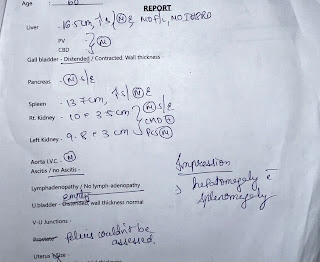 Age : 60
REPORT
Liver - 16.5cm, ↑s/(N)E, NO F/L, NO IHBRD
PV
CBD } (N)
Gall bladder - Distended / Contracted. Wall thickness -
Pancreas - (N) s/E
Spleen - 13.7cm, ↑s/(N)E
Rt. Kidney - 10 × 3.5cm } (N) s/E
CMD (+)
Left Kidney - 9.8 × 3 cm PCS (N)
Aorta I.V.C. - (N)
Ascitis / no Ascitis -
Impression
Lymphadenopathy / No lymph-adenopathy
hepatomegaly c̄
splenomegaly
empty
U.bladder - Distended, wall thickness normal
V-U Junctions -
Prostate - pelvis couldn't be
assessed.
Uterus Size